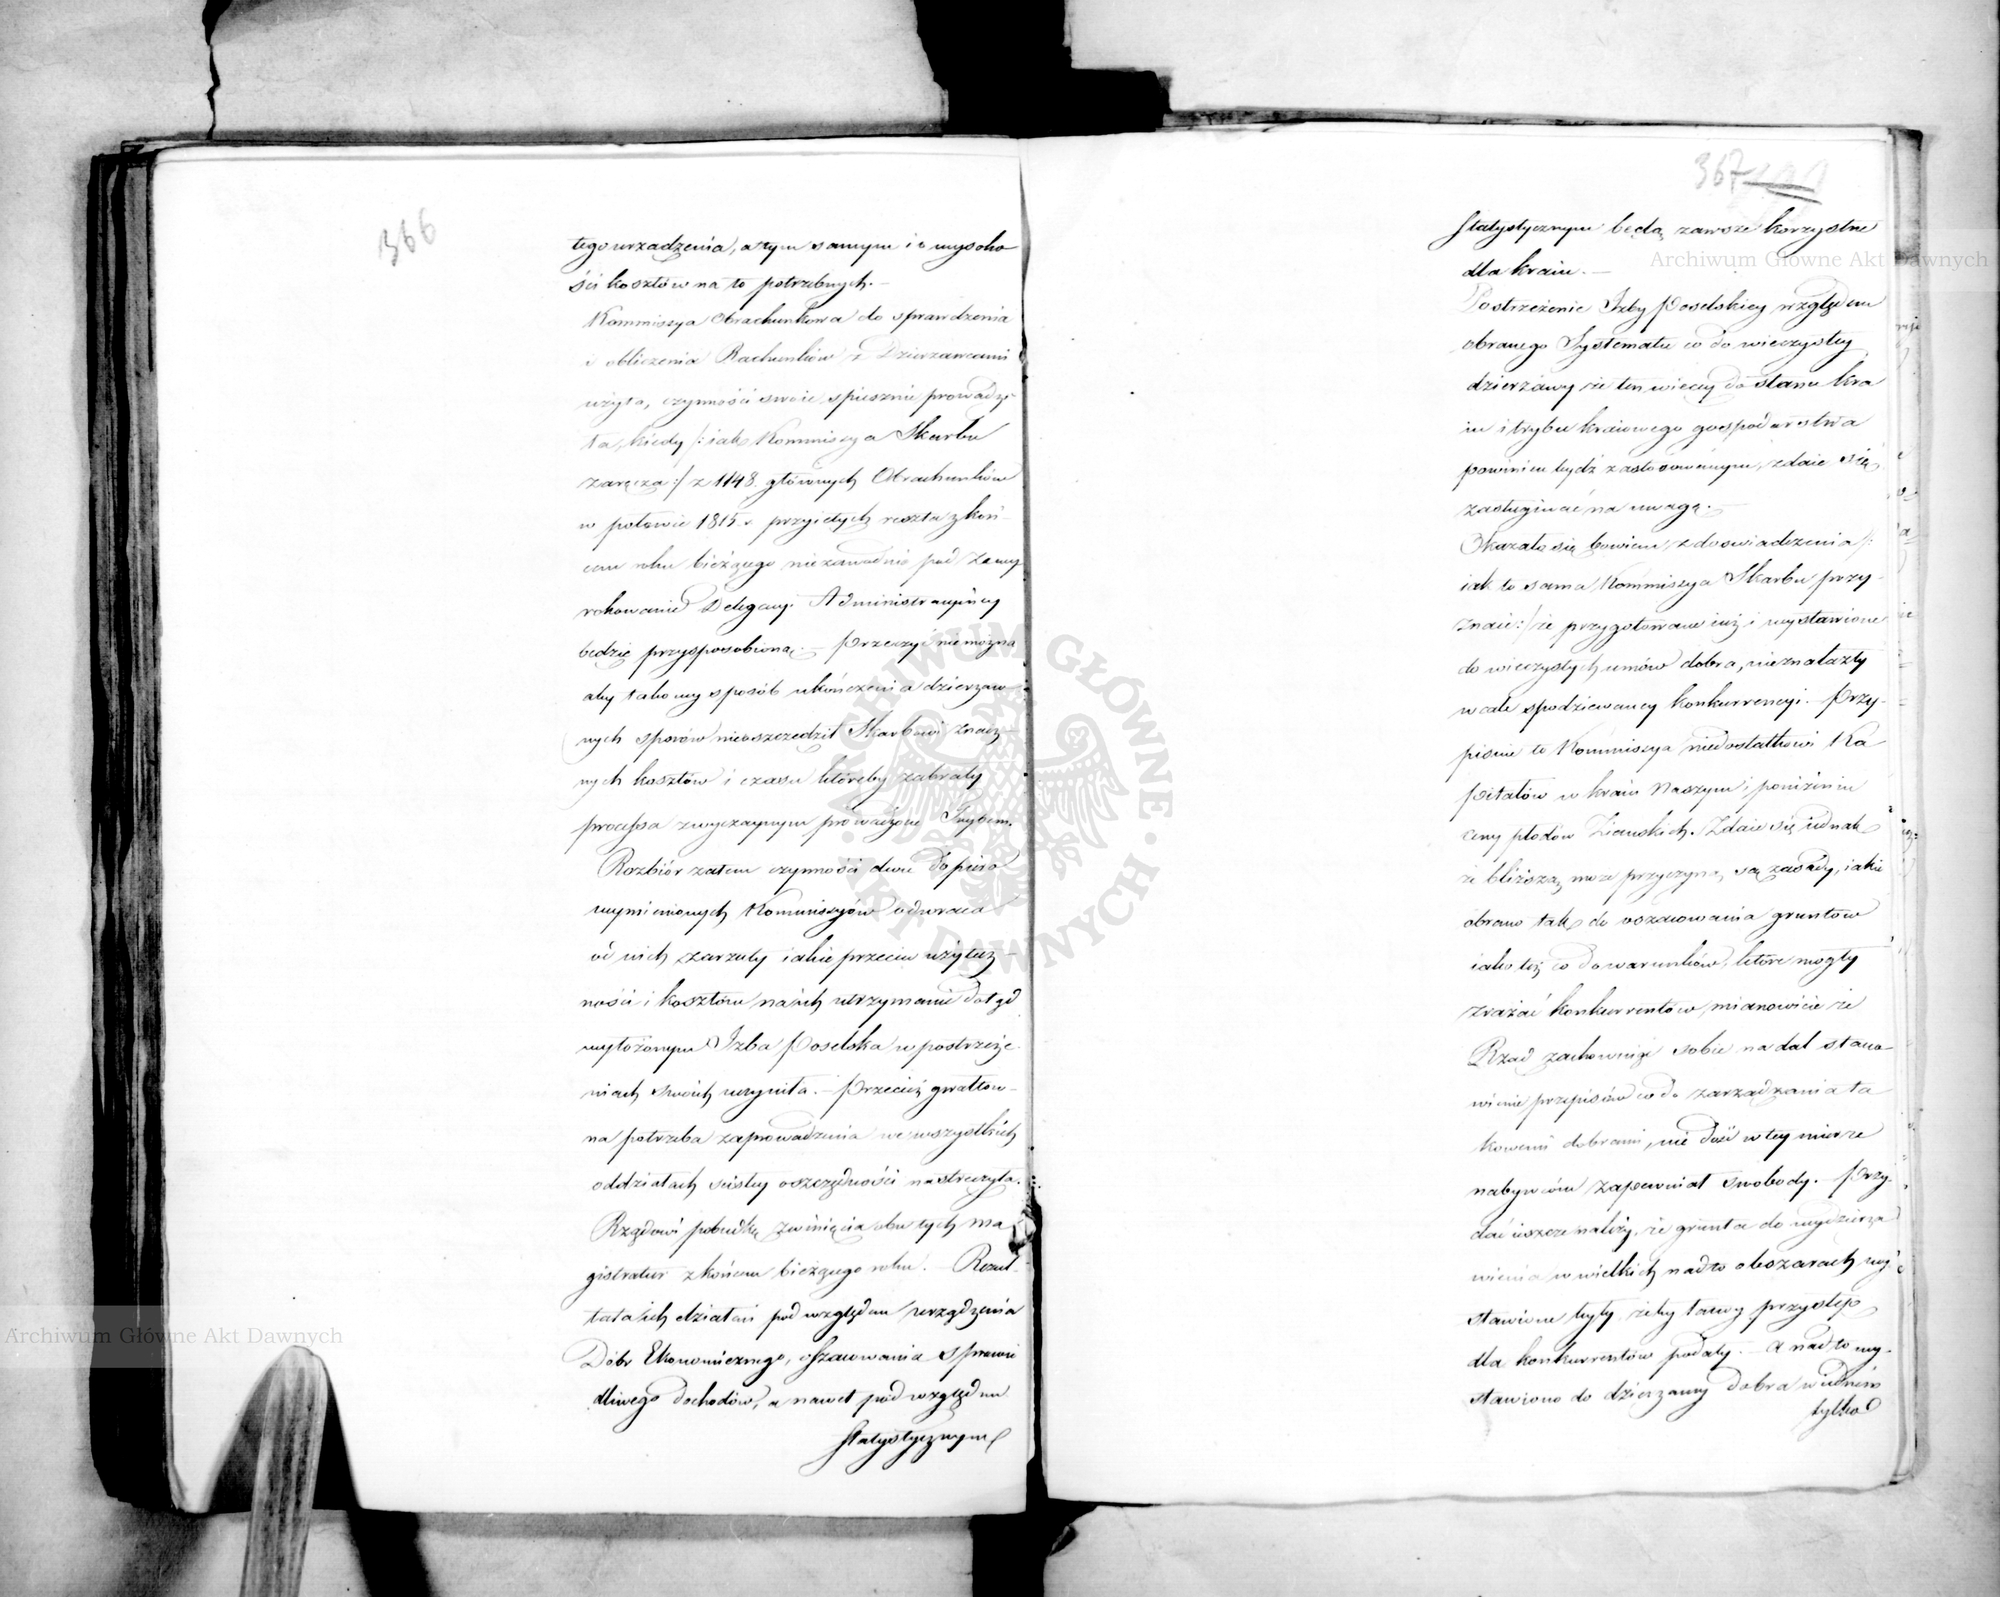 366
tego urządzenia, a tym samym i o wysoko
ści kosztów na to potrzebnych.—
Kommissya Obrachunkowa do sprawdzenia
i obliczenia Rachunków z Dzierzawcami
użyta, czynności swoie spiesznie prowadzi-
ła, kiedy /: iak Kommissya Skarbu
zaręcza :/ z 1148 głównych Obrachunków
w połowie 1815 r. przyiętych reszta z koń-
cem roku bieżącego niezawodnie pod zawy
rokowanie Delegacyi Administracyiney
będzie przysposobioną.— Przeczyć nie można
aby takowy sposób ukończenia dzierzaw-
nych sporów nieoszczedził Skarbowi znacz-
nych kosztów i czasu któreby zabrały
processa zwyczaynym prowadzone Trybem.
Rozbiór zatem czynności dwu dopiero
wymienionych Kommissyów odwraca
od nich zarzuty iakie przeciw użytecz-
ności i kosztom na ich utrzymanie dotąd
wyłożonym Izba Poselska w postrzeże-
niach swoich uczyniła.— Przecież gwałtow-
na potrzeba zaprowadzenia we wszystkich
oddziałach ścisłey oszczędności nastręczyła
Rządowi pobudkę zwinięcia obu tych ma
gistratur z końcem bieżącego roku.— Rezul-
tata ich działań pod względem urządzenia
Dóbr Ekonomicznego, oszacowania sprawie
dliwego dochodów, a nawet pod względem
Statystycznym
367
Statystycznym będą zawsze korzystne
dla kraiu.—
Postrzeżenie Izby Poselskiey względem
obranego Systematu co do wieczystey
dzierżawy że ten więcey do stanu kra
iu i trybu kraiowego gospodarstwa
powinien bydź zastosowanym, zdaie się
zasługiwać na uwagę.—
Okazało się bowiem z doswiadczenia /:
iak to sama Kommissya Skarbu przy-
znaie :/ że przygotowane iuż i wystawione
do wieczystych umów dobra, nieznalazły
wcale spodziewaney konkurrencyi. Przy-
pisuie to Kommissya niedostatkowi Ka
pitałów w kraiu Naszym i poniżeniu
ceny płodów Ziemskich. Zdaie się iednak
że bliższą może przyczyną są zasady, iakie
obrano tak do oszacowania gruntów
iako też co do warunków, które mogły
zrażać konkurrentów, mianowicie że
Rząd zachowuiąc sobie nadal stano-
wienie przepisów co do zarządzania ta
kowemi dobrami, nie dość w tey mierze
nabywcom zapewniał swobody.— Przy-
dać ieszcze należy, że grunta do wydzierża
wienia w wielkich nadto obszarach wy-
stawione były, żeby łatwy przystęp
dla konkurrentów podały.— A nadto wy-
stawiono do dzierżawy dobra w iednem
tylko
Archiwum Główne Akt Dawnych
Archiwum Główne Akt Dawnych
ARCHIWUM GŁÓWNE · AKT DAWNYCH ·